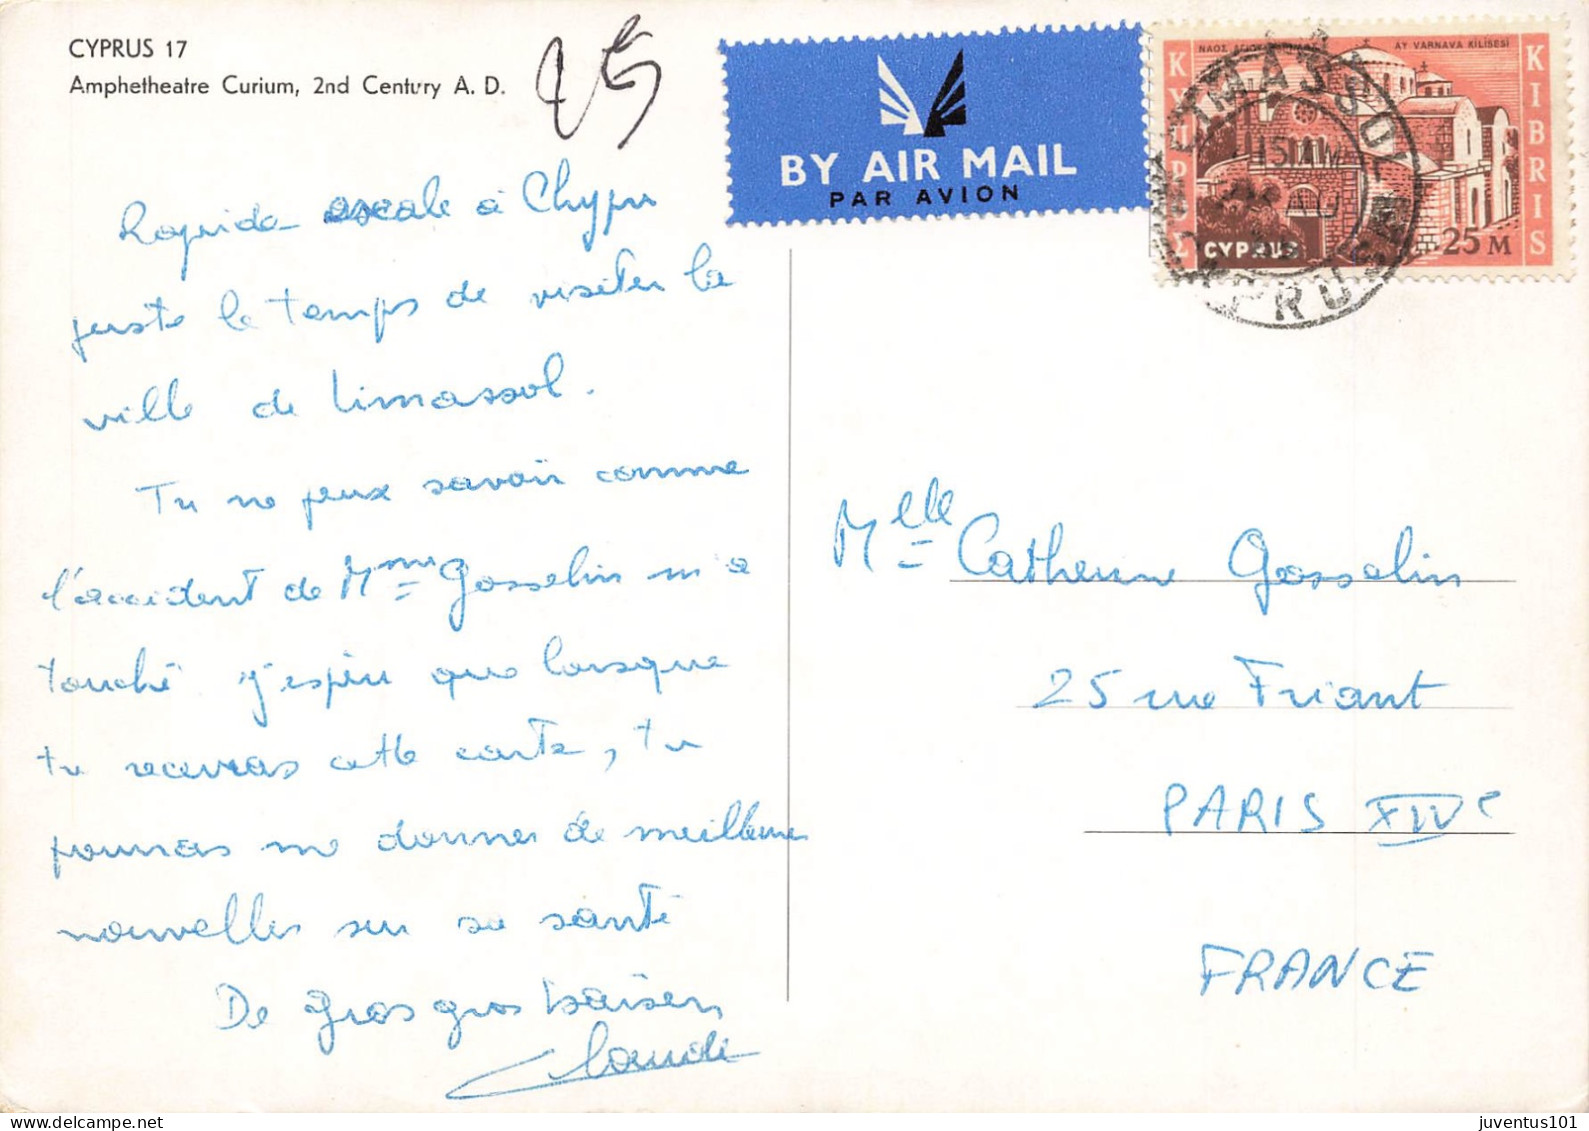 CYPRUS 17
Amphetheatre Curium, 2nd Century A. D.
25
BY AIR MAIL
PAR AVION
ΚΥΠΡΟΣ
AY VARNAVA KILISESI
KIBRIS
CYPRUS
25 M
LIMASSOL
CYPRUS
Rapide escale à Chypre
juste le temps de visiter la
ville de Limassol.
Tu ne peux savoir comme
l'accident de Mme Gosselin m'a
touché j'espère que lorsque
tu recevras cette carte, tu
pourras me donner de meilleures
nouvelles sur sa santé
De gros gros baisers
Claude
Melle Catherine Gosselin
25 rue Friant
PARIS XIVe
FRANCE
juventus101